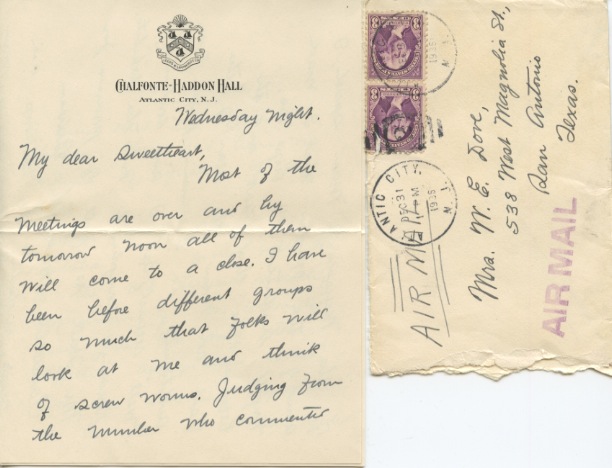 CHALFONTE-HADDON HALL
ATLANTIC CITY, N.J.
Wednesday Night.
My dear Sweetheart,
Most of the
meetings are over and by
tomorrow noon all of them
will come to a close. I have
been before different groups
so much that folks will
look at me and think
of screw worms. Judging from
the number who commented
3
3
1936
N.
ANTIC CITY,
DEC 31
PM
1936
N. J.
AIR MAIL
Mrs. W. E. Dove,
538 West Magnolia St.,
San Antonio
Texas.
AIR MAIL